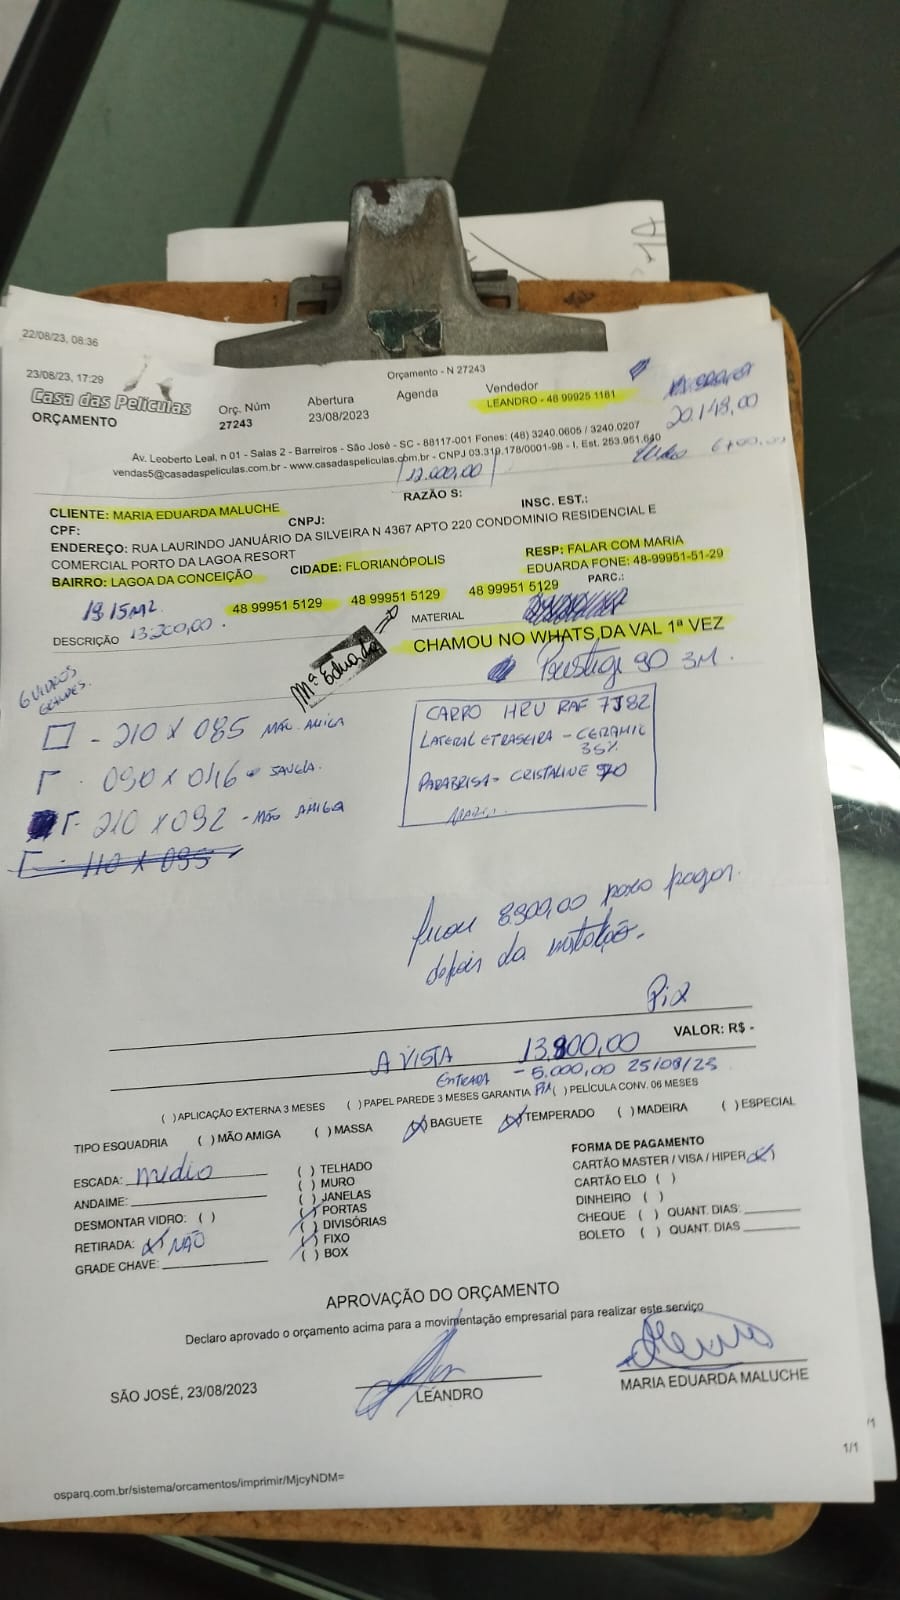 22/08/23, 08:36
23/08/23, 17:29
Orçamento - N 27243
Casa das Peliculas
ORÇAMENTO
Orç. Núm
27243
Abertura
23/08/2023
Agenda
Vendedor
LEANDRO - 48 99925 1181
20.148,00
Av. Leoberto Leal, n 01 - Salas 2 - Barreiros - São José - SC - 88117-001 Fones: (48) 3240.0605 / 3240.0207
vendas5@casadaspeliculas.com.br - www.casadaspeliculas.com.br - CNPJ 03.319.178/0001-98 - I. Est. 253.951.640
12.000,00
CLIENTE: MARIA EDUARDA MALUCHE
RAZÃO S:
CPF:
CNPJ:
INSC. EST.:
ENDEREÇO: RUA LAURINDO JANUÁRIO DA SILVEIRA N 4367 APTO 220 CONDOMINIO RESIDENCIAL E
COMERCIAL PORTO DA LAGOA RESORT
BAIRRO: LAGOA DA CONCEIÇÃO
CIDADE: FLORIANÓPOLIS
RESP: FALAR COM MARIA
EDUARDA FONE: 48-99951-51-29
48 99951 5129
48 99951 5129
48 99951 5129
PARC.:
19.15M2
DESCRIÇÃO
13.200,00.
MATERIAL
CHAMOU NO WHATS DA VAL 1ª VEZ
Mª Eduarda
Prestige 90 3M.
6 VIDROS
GRANDES.
- 210 X 085 MÃO AMIGA
090 X 046 - JANELA.
210 X 092 - MÃO AMIGA
110 X 095
CARRO HRV RAF 7J82
LATERAL E TRASEIRA - CERAMIC
35%
PARABRISA - CRISTALINE 70
ficou 8300,00 para pagar
depois da instalação.
Pix
VALOR: R$ -
A VISTA 13.800,00
ENTRADA - 5.000,00 25/08/23
( )APLICAÇÃO EXTERNA 3 MESES ( )PAPEL PAREDE 3 MESES GARANTIA ( )PELÍCULA CONV. 06 MESES
TIPO ESQUADRIA ( )MÃO AMIGA ( )MASSA (X)BAGUETE (X)TEMPERADO ( )MADEIRA ( )ESPECIAL
ESCADA: médio
ANDAIME:
DESMONTAR VIDRO: ( )
RETIRADA: (X) NÃO
GRADE CHAVE:
( ) TELHADO
( ) MURO
( ) JANELAS
( ) PORTAS
( ) DIVISÓRIAS
( ) FIXO
( ) BOX
FORMA DE PAGAMENTO
CARTÃO MASTER / VISA / HIPER (X)
CARTÃO ELO ( )
DINHEIRO ( )
CHEQUE ( ) QUANT. DIAS:
BOLETO ( ) QUANT. DIAS
APROVAÇÃO DO ORÇAMENTO
Declaro aprovado o orçamento acima para a movimentação empresarial para realizar este serviço
SÃO JOSÉ, 23/08/2023
LEANDRO
MARIA EDUARDA MALUCHE
1/1
osparq.com.br/sistema/orcamentos/imprimir/MjcyNDM=